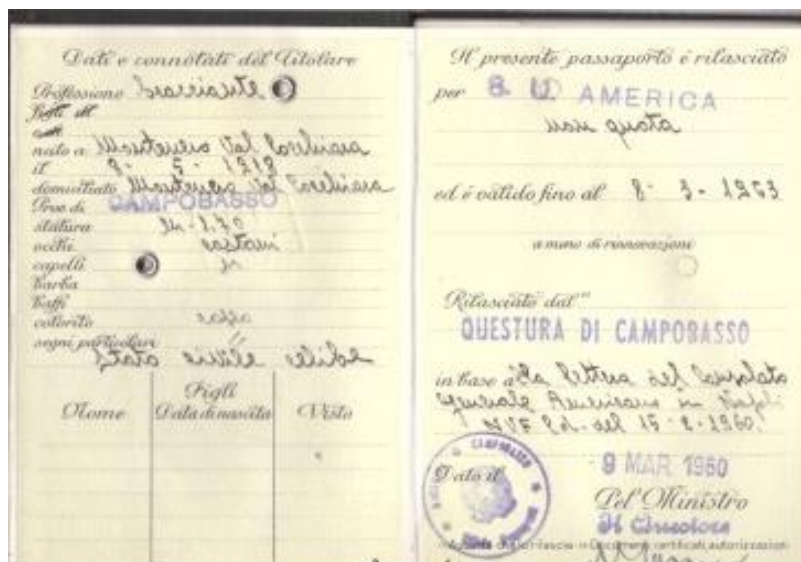 Dati e connotati del Titolare
Professione bracciante
Figli di
nato a Montenero Val Cocchiara
il 8- 5- 1918
domiciliato Montenero Val Cocchiara
Prov. di CAMPOBASSO
statura m- 1.70
occhi castani
capelli
barba
baffi
colorito roseo
segni particolari
Stato civile celibe
Figli
Nome Data di nascita Visto
Il presente passaporto è rilasciato
per S. U. AMERICA
non quota
ed è valido fino al 8- 3- 1963
a meno di rinnovazioni
Rilasciato dal
QUESTURA DI CAMPOBASSO
in base alla lettera del Consolato
Generale Americano in Napoli
del 15- 2- 1960.
CAMPOBASSO
Dato il 9 MAR 1960
Pel Ministro
Il Questore